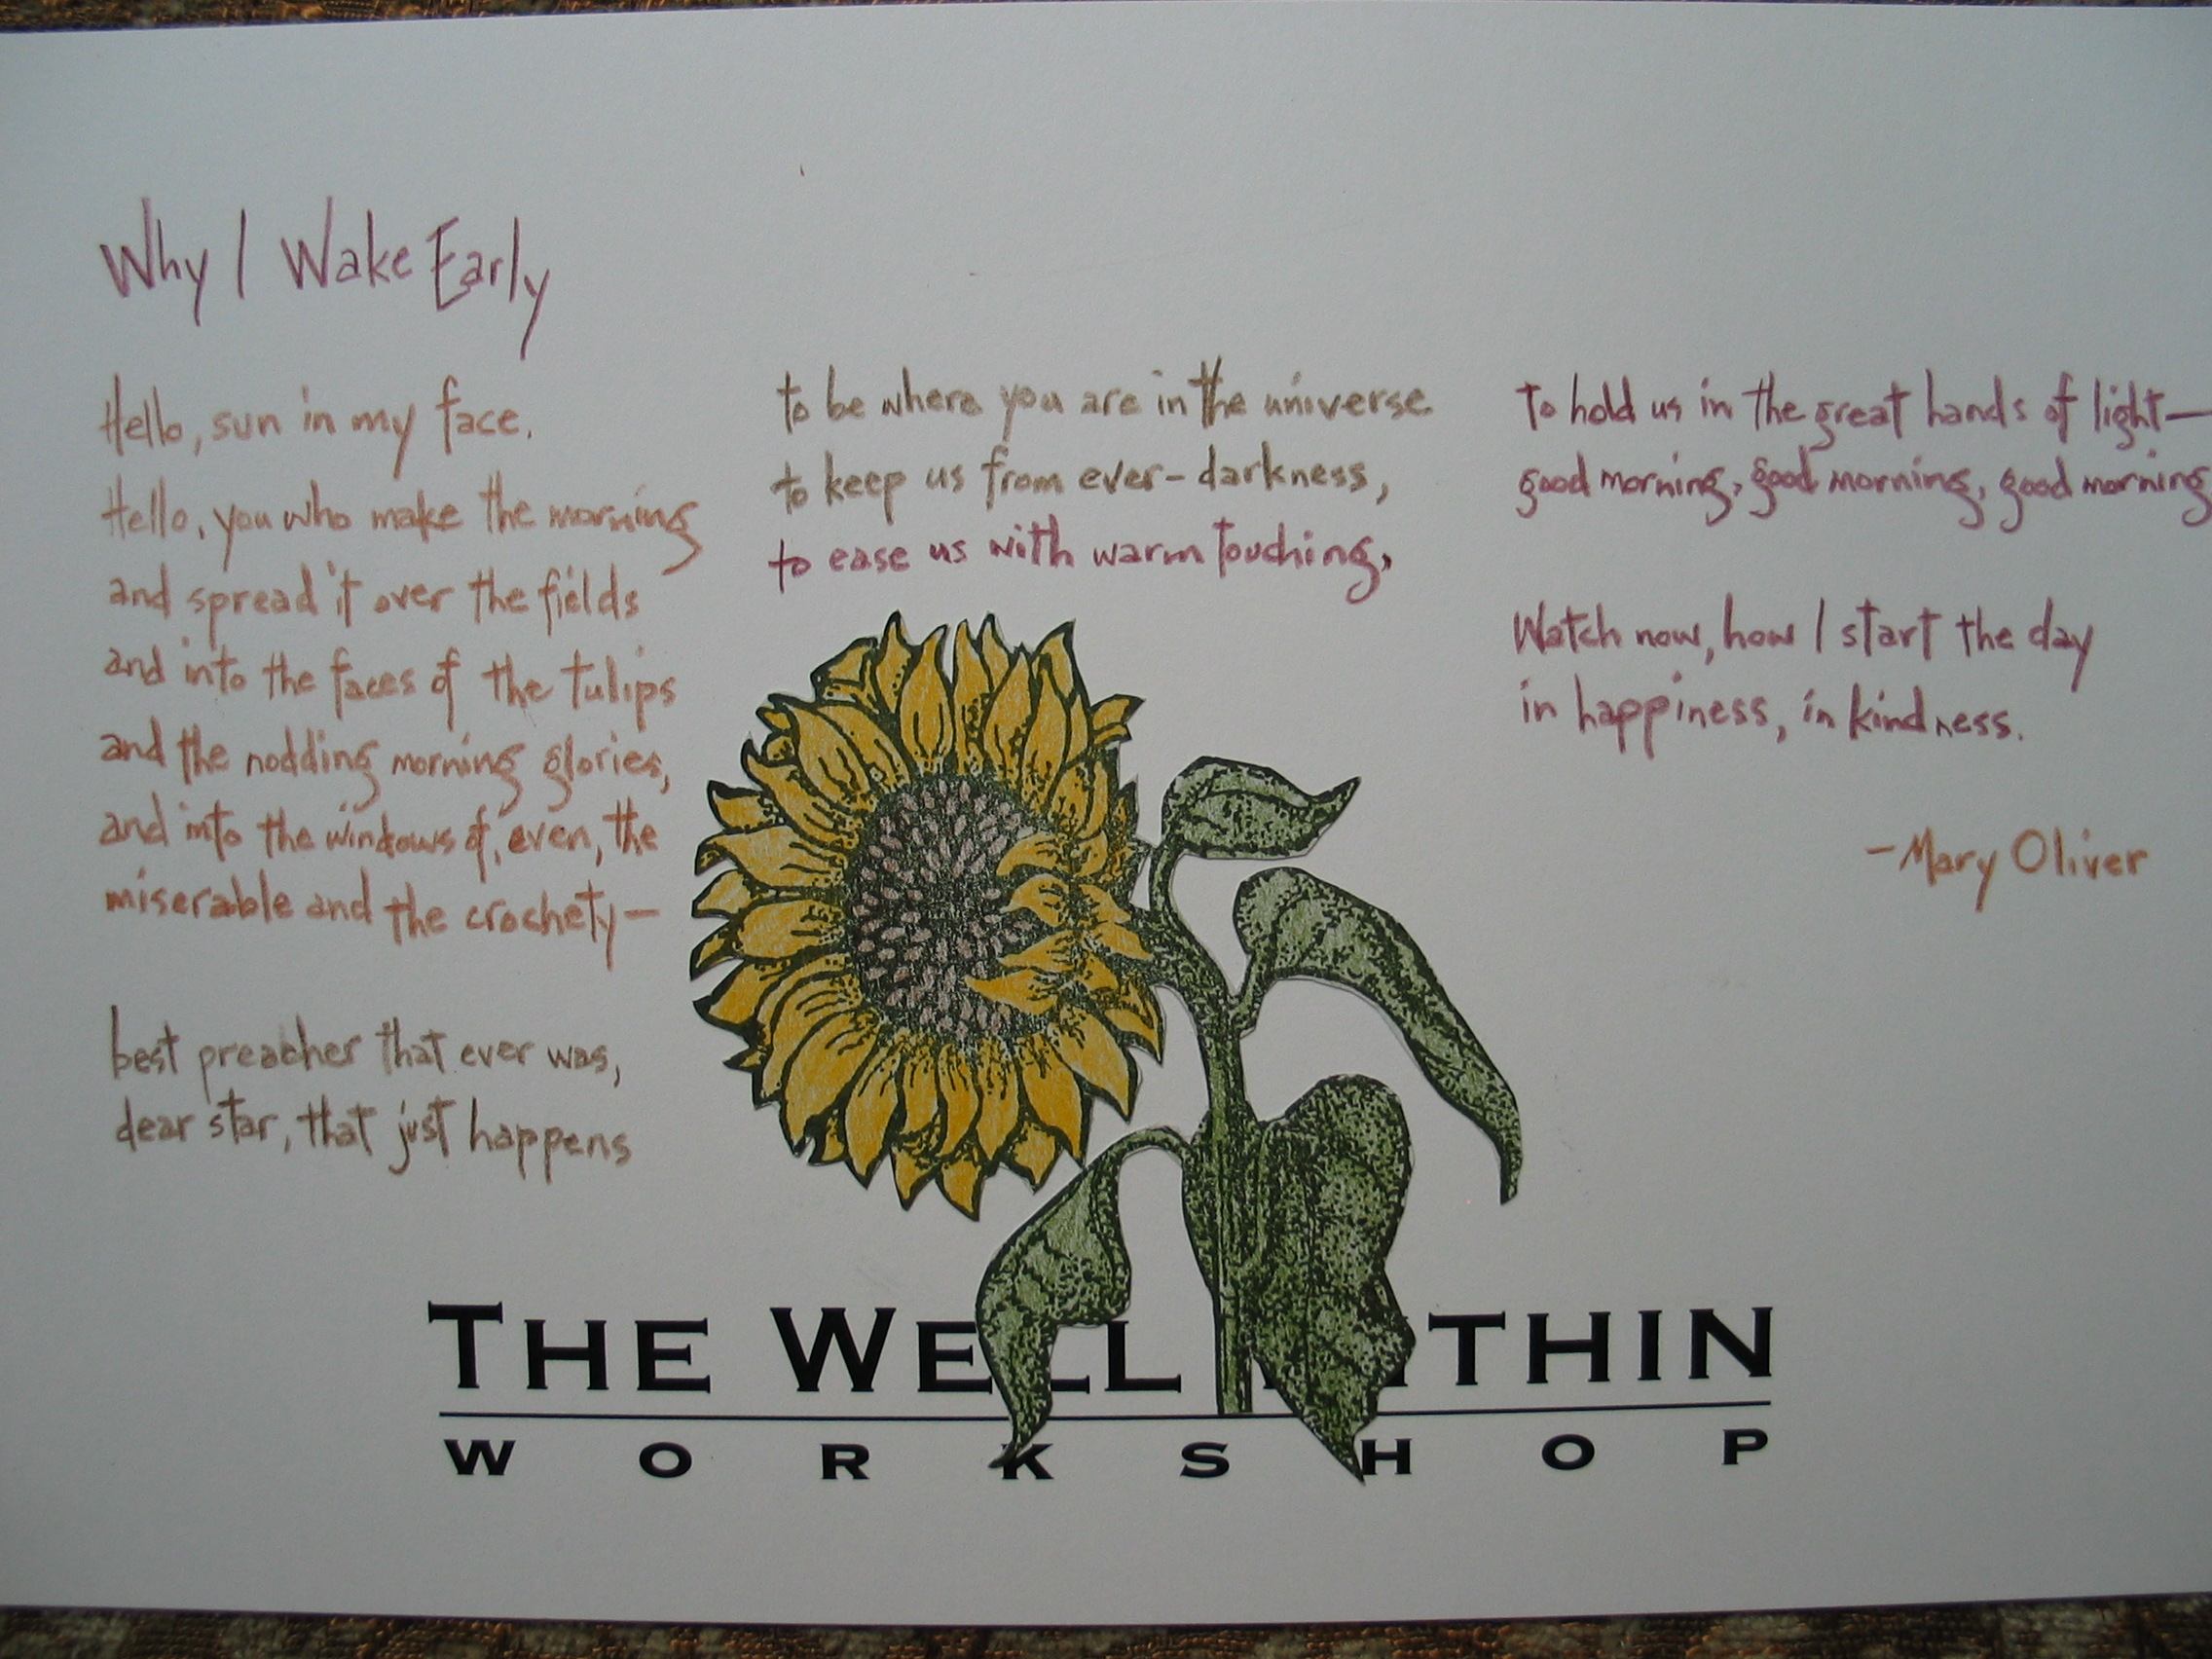 Why I Wake Early
Hello, sun in my face.
Hello, you who make the morning
and spread it over the fields
and into the faces of the tulips
and the nodding morning glories,
and into the windows of, even, the
miserable and the crochety—
best preacher that ever was,
dear star, that just happens
to be where you are in the universe
to keep us from ever-darkness,
to ease us with warm touching,
to hold us in the great hands of light—
good morning, good morning, good morning
Watch now, how I start the day
in happiness, in kindness.
—Mary Oliver
THE WELL WITHIN
WORKSHOP